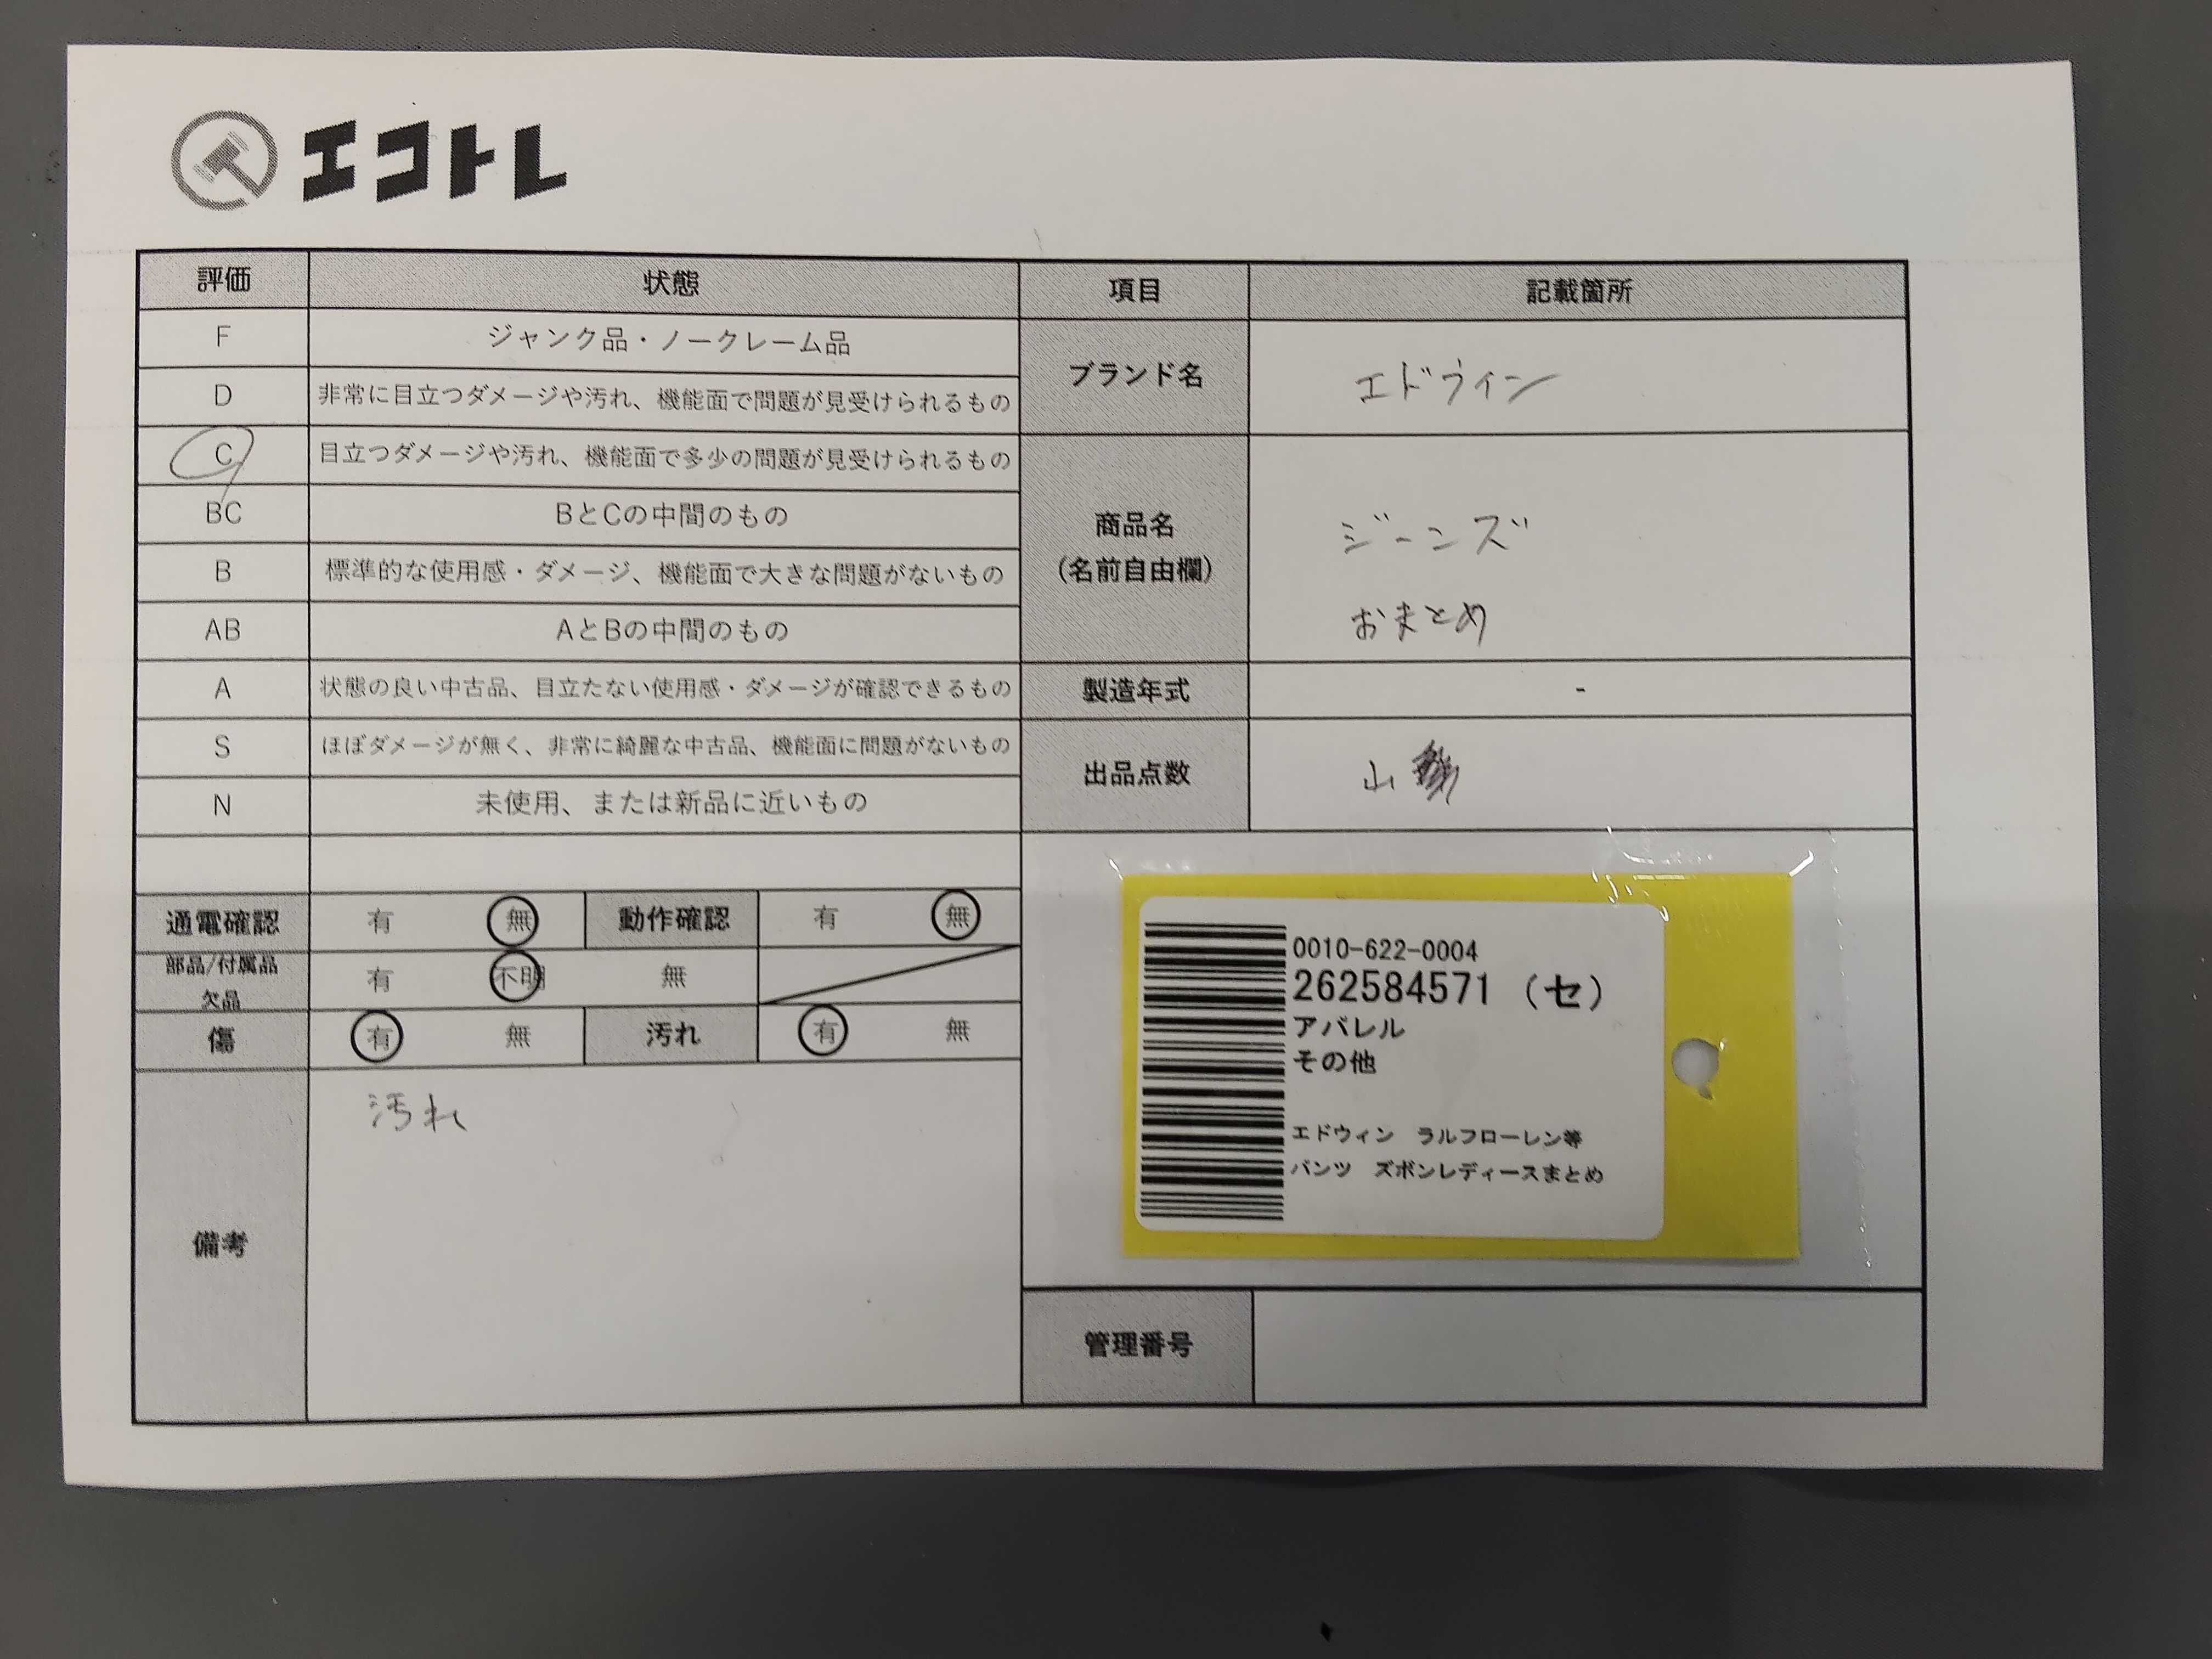 エコトレ
評価 状態 項目 記載箇所
F ジャンク品・ノークレーム品
D 非常に目立つダメージや汚れ、機能面で問題が見受けられるもの
C 目立つダメージや汚れ、機能面で多少の問題が見受けられるもの
BC BとCの中間のもの
B 標準的な使用感・ダメージ、機能面で大きな問題がないもの
AB AとBの中間のもの
A 状態の良い中古品、目立たない使用感・ダメージが確認できるもの
S ほぼダメージが無く、非常に綺麗な中古品、機能面に問題がないもの
N 未使用、または新品に近いもの
ブランド名 エドウィン
商品名
(名前自由欄)
ジーンズ
おまとめ
製造年式 -
出品点数 山
通電確認 有 無 動作確認 有 無
部品/付属品
欠品
有 不明 無
傷 有 無 汚れ 有 無
備考 汚れ
0010-622-0004
262584571 (セ)
アパレル
その他
エドウィン ラルフローレン等
パンツ ズボンレディースまとめ
管理番号